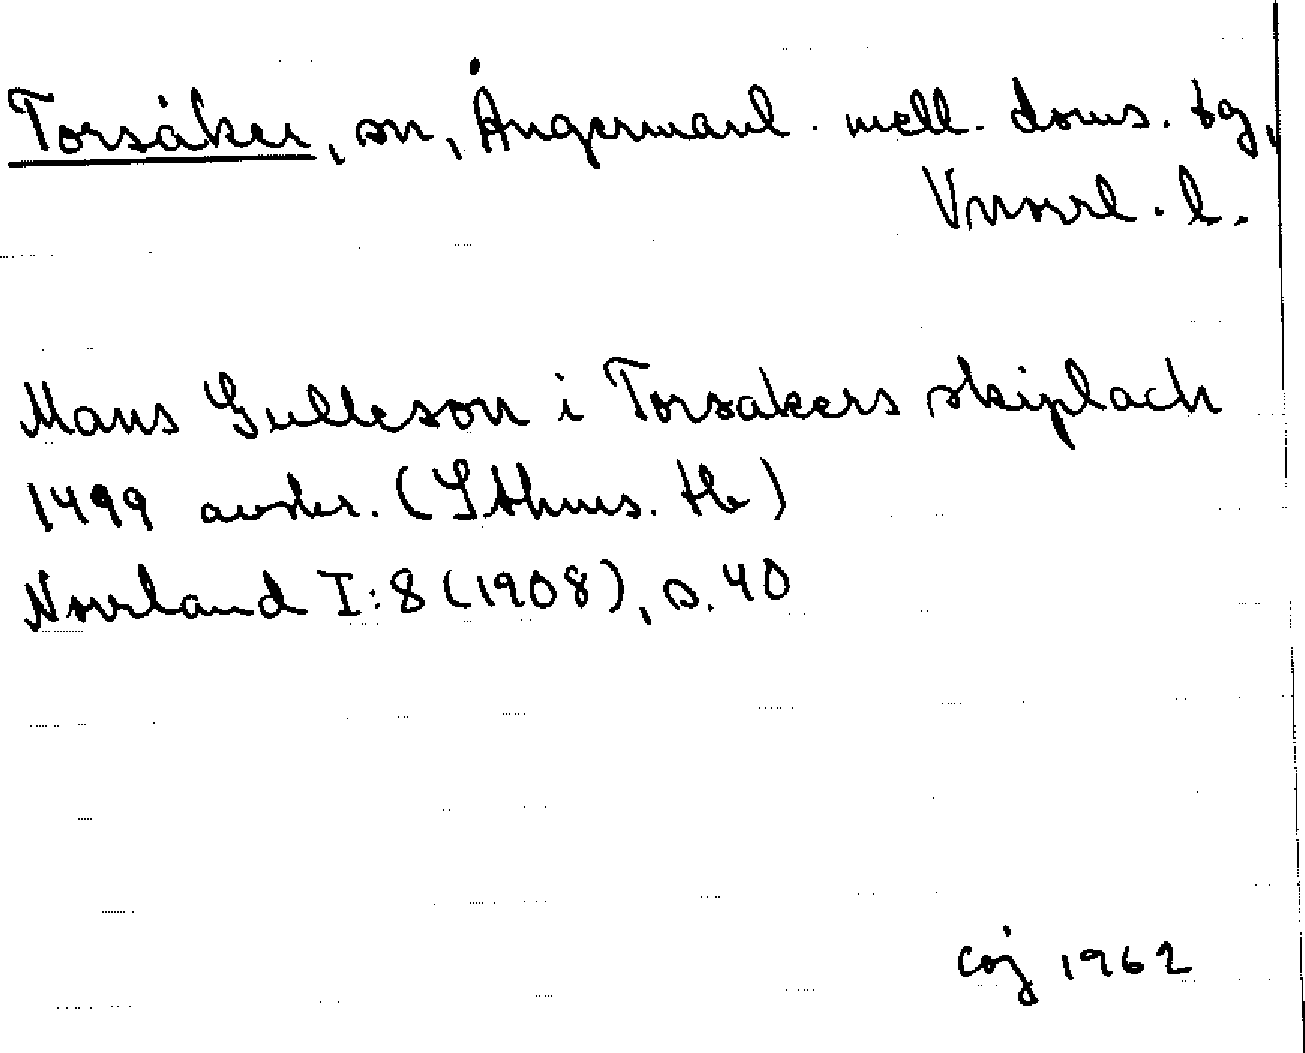 Torsåker, sn, Ångermanl. mell. doms. tg,
Vnorrl. l.
Mans Gulleson i Torsakers skiplach
1499 avskr. (Sthms. tb)
Norrland I:8 (1908), s. 40
coj 1962